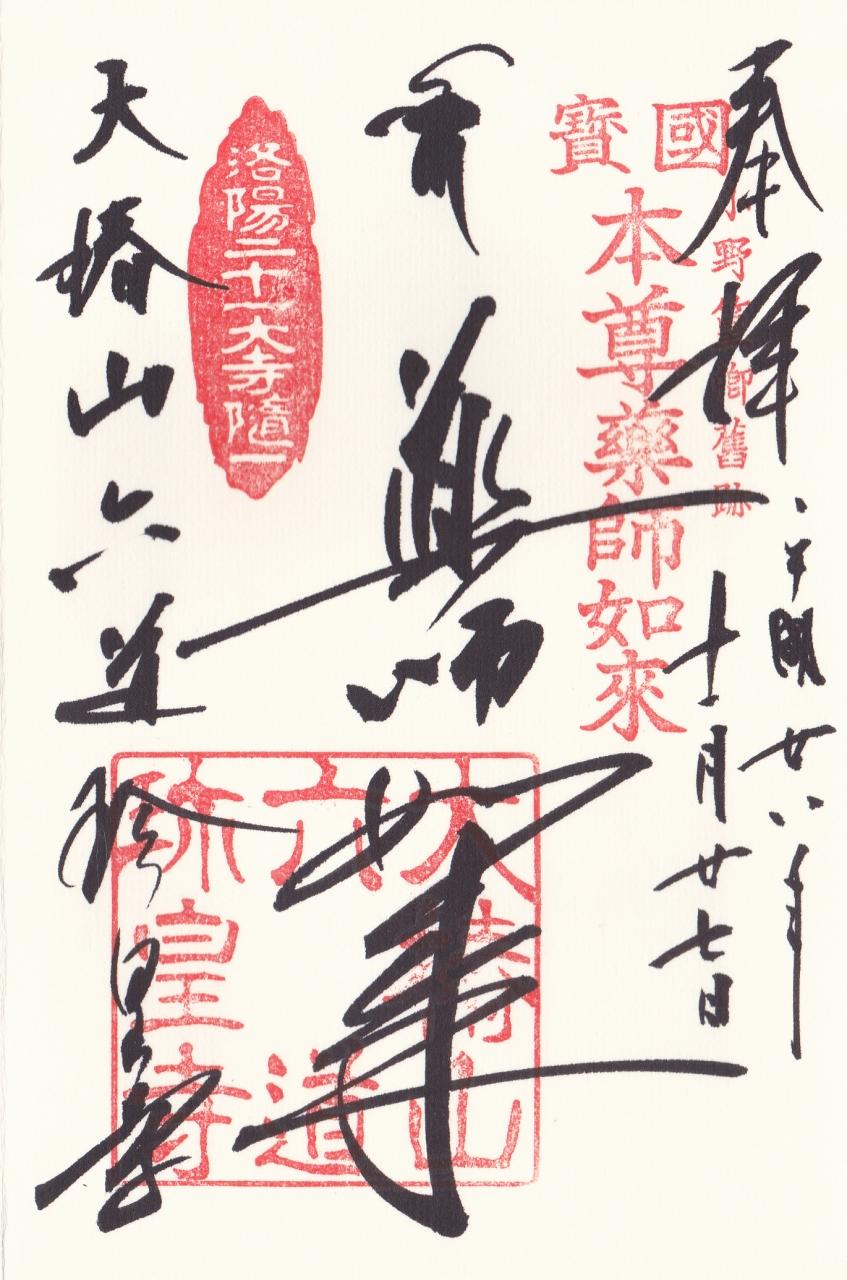 奉拝
廿八年
十月廿七日
小野篁卿舊跡
國寶
本尊藥師如來
薬師如来
洛陽二十一大寺隨一
大椿山六道
珍皇寺
大椿山
六道
珎皇寺